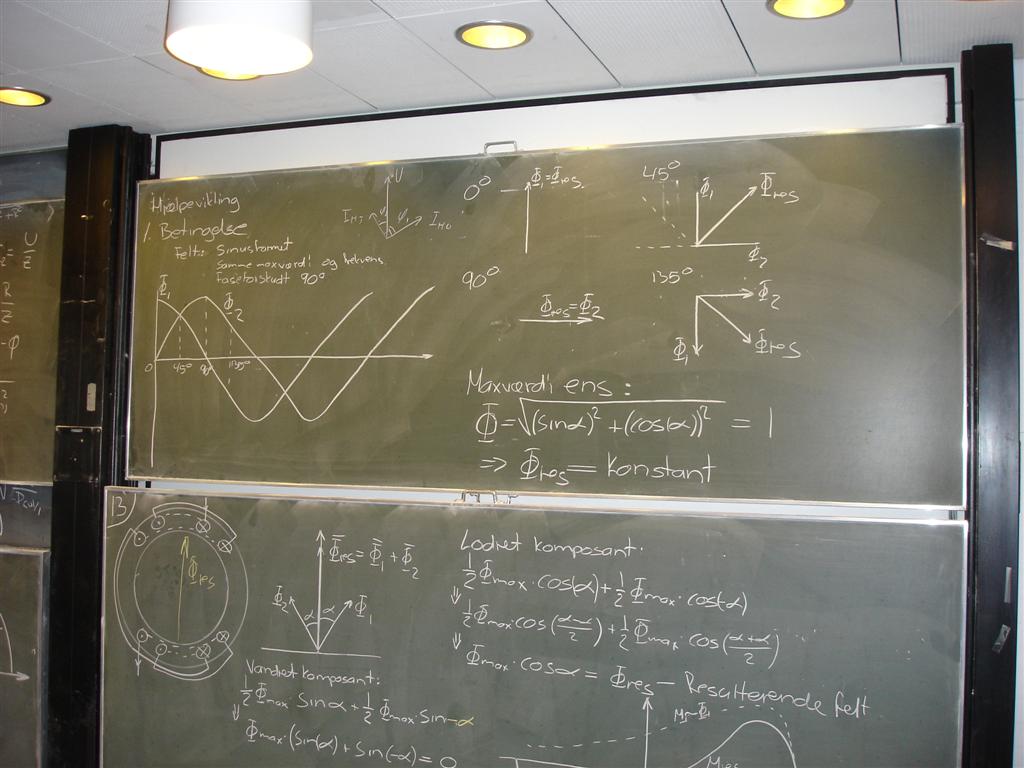 Hjælpevikling
1. Betingelse
Felt: Sinusformet
samme maxværdi og frekvens
Faseforskudt 90°
U
I_HO
Φ₁
Φ₂
0 45° 90° 135°
0° Φ₁=Φres
45° Φ₁ Φres
Φ₂
90° Φres=Φ₂
135° Φ₂
Φ₁ Φres
Maxværdi ens:
Φ=√((sinα)²+(cos(α))²) = 1
=> Φres = konstant
13
Φres
Φres=Φ₁+Φ₂
Φ₂ α α Φ₁
Vandret komposant:
½Φmax·Sinα+½Φmax·Sin-α
⇓ Φmax·(Sin(α)+Sin(-α)=0
Lodret komposant:
½Φmax·cos(α)+½Φmax·cos(-α)
⇓ ½Φmax·cos((α-α)/2)+½Φmax·cos((α+α)/2)
⇓ Φmax·cosα = Φres – Resulterende felt